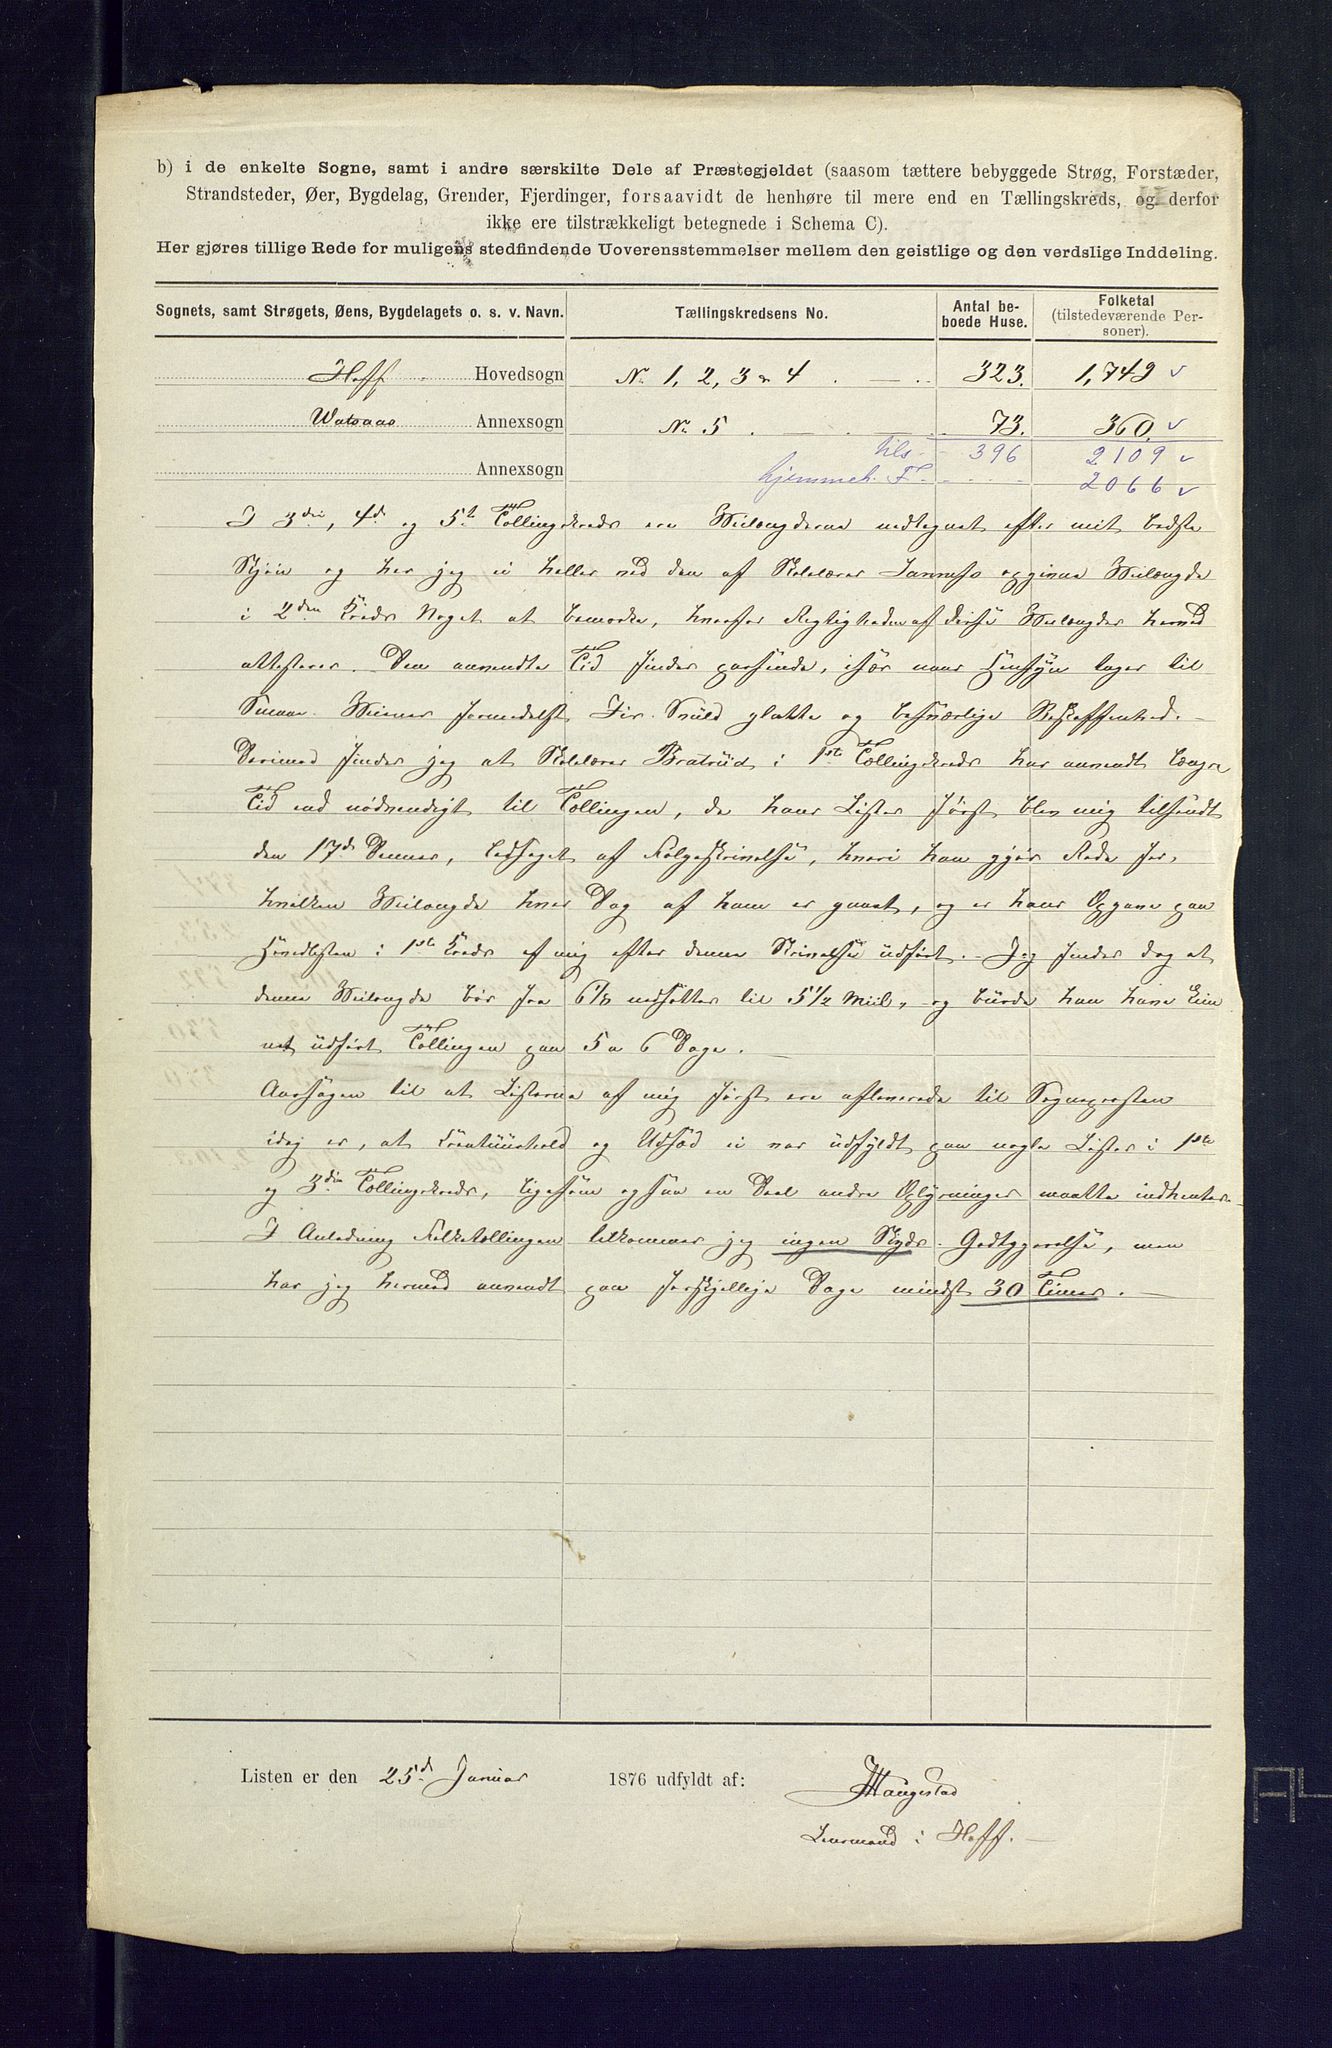 b) i de enkelte Sogne, samt i andre særskilte Dele af Præstegjeldet (saasom tættere bebyggede Strøg, Forstæder,
Strandsteder, Øer, Bygdelag, Grender, Fjerdinger, forsaavidt de henhøre til mere end en Tællingskreds, og derfor
ikke ere tilstrækkeligt betegnede i Schema C).
Her gjøres tillige Rede for muligens stedfindende Uoverensstemmelser mellem den geistlige og den verdslige Inddeling.
Sognets, samt Strøgets, Øens, Bygdelagets o. s. v. Navn. Tællingskredsens No. Antal be-
boede Huse. Folketal
(tilstedeværende Per-
soner).
Hoff Hovedsogn No 1, 2, 3 & 4 323. 1,749
Annexsogn No 5 73. 360.
Annexsogn tils. 396 2109
hjemmeh. F. 2066
I 3die, 4de og 5te Tællingskreds ere Veilængderne nedtegnet efter mit bedste
Skjøn og har jeg ei heller ved den af Skolelærer opgivne Veilængde
i 2den Kreds Noget at bemærke, hvorfor Rigtigheden af disse Veilængder herved
attesteres. Den anvendte Tid findes passende, især naar Hensyn tages til
Veienes formedelst Iis glatte og besværlige Beskaffenhed. –
Derimod finder jeg at Skolelærer Bratrud i 1ste Tællingskreds har anvendt længre
Tid end nødvendigt til Tællingen, da hans Lister først blev mig tilsendt
den 17de Dennes, ledsaget af Følgeskrivelse, hvori han gjør Rede for,
hvilken Veilængde hver Dag af ham er gaaet, og er hans Opgave paa
Hovedlisten i 1ste Kreds af mig efter denne Skrivelse udført. – Jeg finder dog at
denne Veilængde bør fra 6 1/8 nedsættes til 5 1/2 Miil, og burde han have
udført Tællingen paa 5 a 6 Dage. –
Aarsagen til at Listerne af mig først ere afleverede til Sognepræsten
idag er, at Kreaturhold og Udsæd ei var udfyldt paa nogle Lister i 1ste
og 3die Tællingskreds, ligesom ogsaa en Deel andre Oplysninger maatte indhentes.
I Anledning Folketællingen tilkommer jeg ingen Skyds-Godtgjørelse, men
har jeg hermed anvendt paa forskjellige Dage mindst 30 Timer. –
Listen er den 25de Januar 1876 udfyldt af: Haugestad
Lensmand i Hoff. –